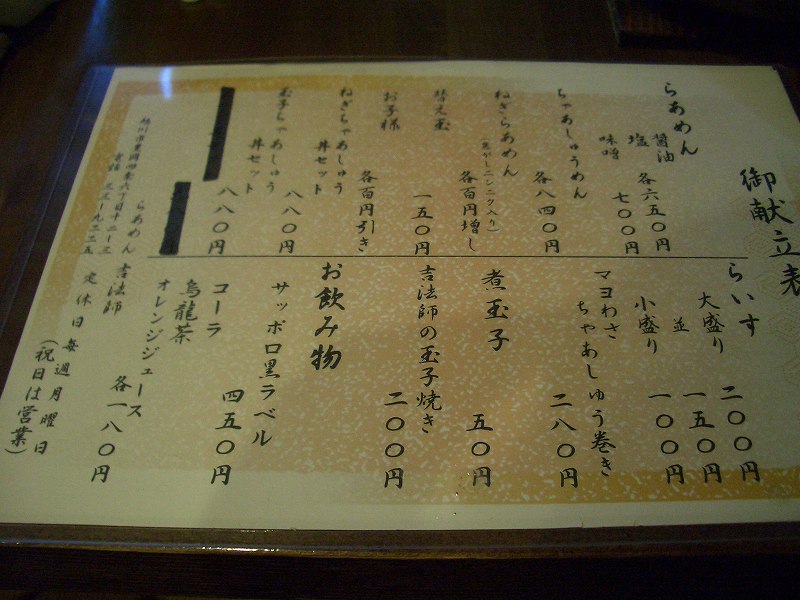 御献立表
らあめん
醤油
塩
各六五〇円
味噌
七〇〇円
ちゃあしゅうめん
各八四〇円
ねぎらあめん
(焦がしニンニク入り)
各百円増し
替え玉
一五〇円
お子様
各百円引き
ねぎちゃあしゅう
丼セット
八八〇円
玉子ちゃあしゅう
丼セット
八八〇円
らいす
大盛り
二〇〇円
並
一五〇円
小盛り
一〇〇円
マヨわさ
ちゃあしゅう巻き
二八〇円
煮玉子
五〇円
吉法師の玉子焼き
二〇〇円
お飲み物
サッポロ黒ラベル
四五〇円
コーラ
烏龍茶
オレンジジュース
各一八〇円
らあめん
吉法師
旭川市東光四条六丁目十二-三
電話 三三-九三三五
定休日 毎週月曜日
(祝日は営業)